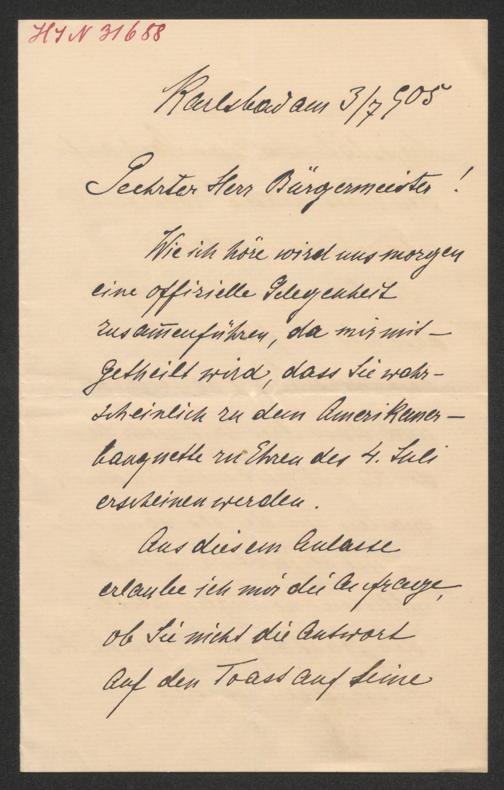 HIN 31688
Karlsbad am 3/7 905
Geehrter Herr Bürgermeister!
Wie ich höre wird uns morgen
eine offizielle Gelegenheit
zusam̅enführen, da mir mit-
getheilt wird, dass Sie wahr-
scheinlich zu dem Amerikaner-
banquette zu Ehren des 4. Juli
erscheinen werden.
Aus diesem Anlasse
erlaube ich mir die Anfrage,
ob Sie nicht die Antwort
auf den Toast auf Seine